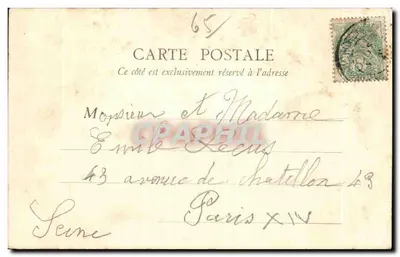 65/
CARTE POSTALE
Ce côté est exclusivement réservé à l'adresse
Monsieur et Madame
Emile Lecus
43 avenue de Chatillon 43
Paris XIV
Seine